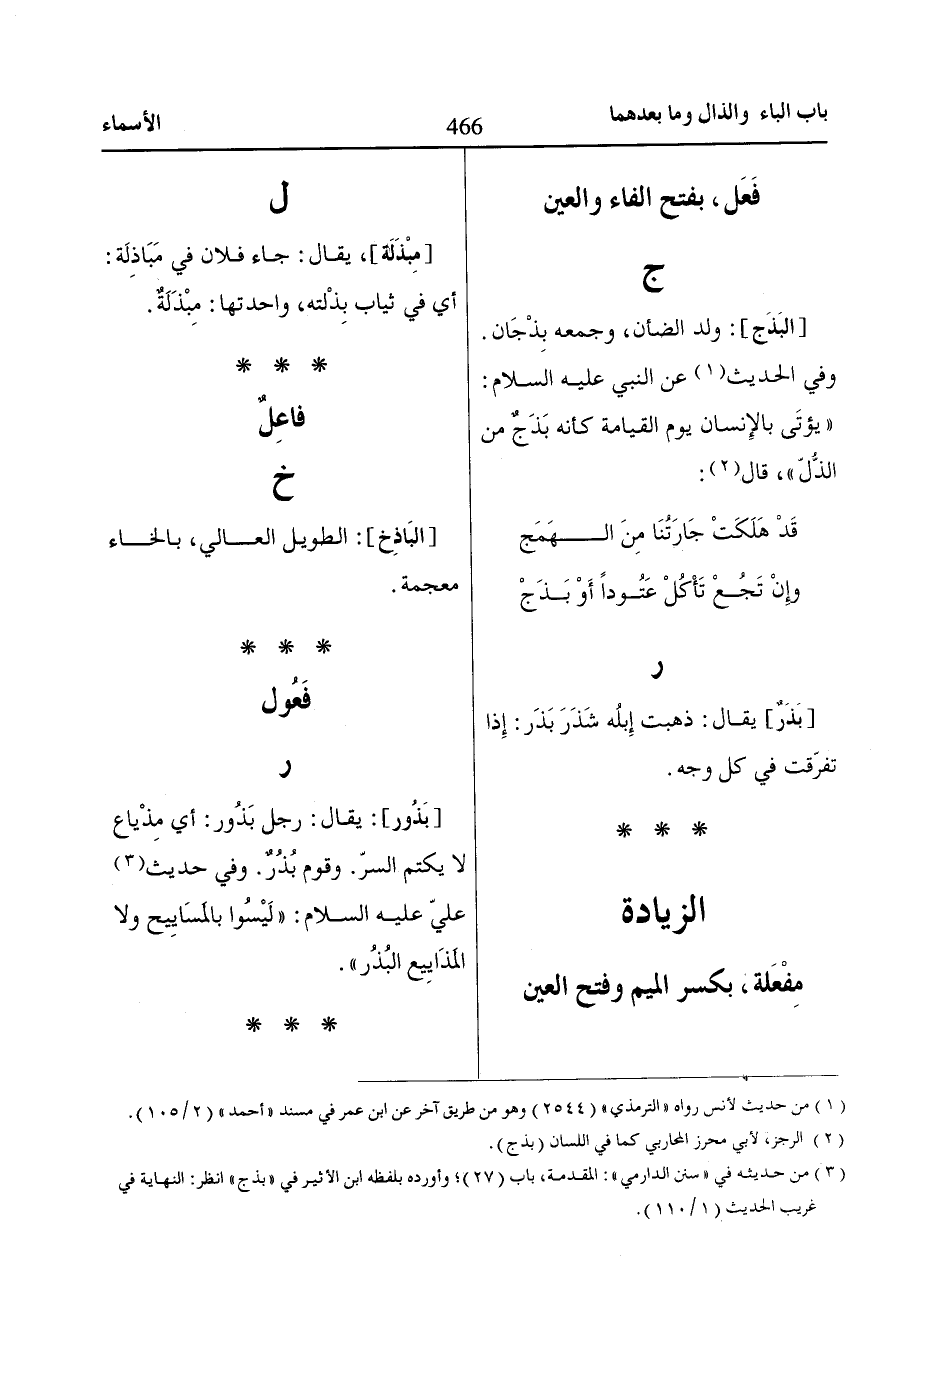 باب الباء والذال وما بعدهما
466
الأسماء
فَعَل، بفتح الفاء والعين
ج
[البَذَج]: ولد الضأن، وجمعه بِذْجَان.
وفي الحديث(١) عن النبي عليه السلام:
«يؤتَى بالإنسان يوم القيامة كأنه بَذَجٌ من
الذُّلّ»، قال(٢):
قَدْ هَلَكَتْ جَارَتُنَا مِنَ الـــــهَمَج
وإِنْ تَجُــعْ تَأْكُلْ عَتُــوداً أَوْ بَــذَجْ
ر
[بَذَرٌ] يقـال: ذهبت إِبلُه شَذَرَ بَذَر: إِذا
تفرّقت في كل وجه.
* * *
الزيادة
مِفْعَلة، بكسر الميم وفتح العين
ل
[مِبْذَلَة]، يقـال: جـاء فـلان في مَبَاذِلَة:
أي في ثياب بِذْلته، واحدتها: مِبْذَلَةٌ.
* * *
فاعِلٌ
خ
[البَاذِخ]: الطويل العـــالي، بـالخـــاء
معجمة.
* * *
فَعُول
ر
[بَذُور]: يقـال: رجـل بَذُور: أي مِذْيـاع
لا يكتم السرّ. وقوم بُذُرٌ. وفي حديث(٣)
عليّ عليـه السـلام: «لَيْسُوا بالمَسَايِيح ولا
المَذَايِيع البُذُر».
* * *
(١) من حديث لأنس رواه «الترمذي» (٢٥٤٤) وهو من طريق آخر عن ابن عمر في مسند «أحمد» (٢/١٠٥).
(٢) الرجز، لأبي محرز المحاربي كما في اللسان (بذج).
(٣) من حـديثـه في «سنن الدارمي»: المقـدمـة، باب (٢٧)؛ وأورده بلفظه ابن الأثيـر في «بذج» انظر: النهـاية في
غريب الحديث (١/١١٠).